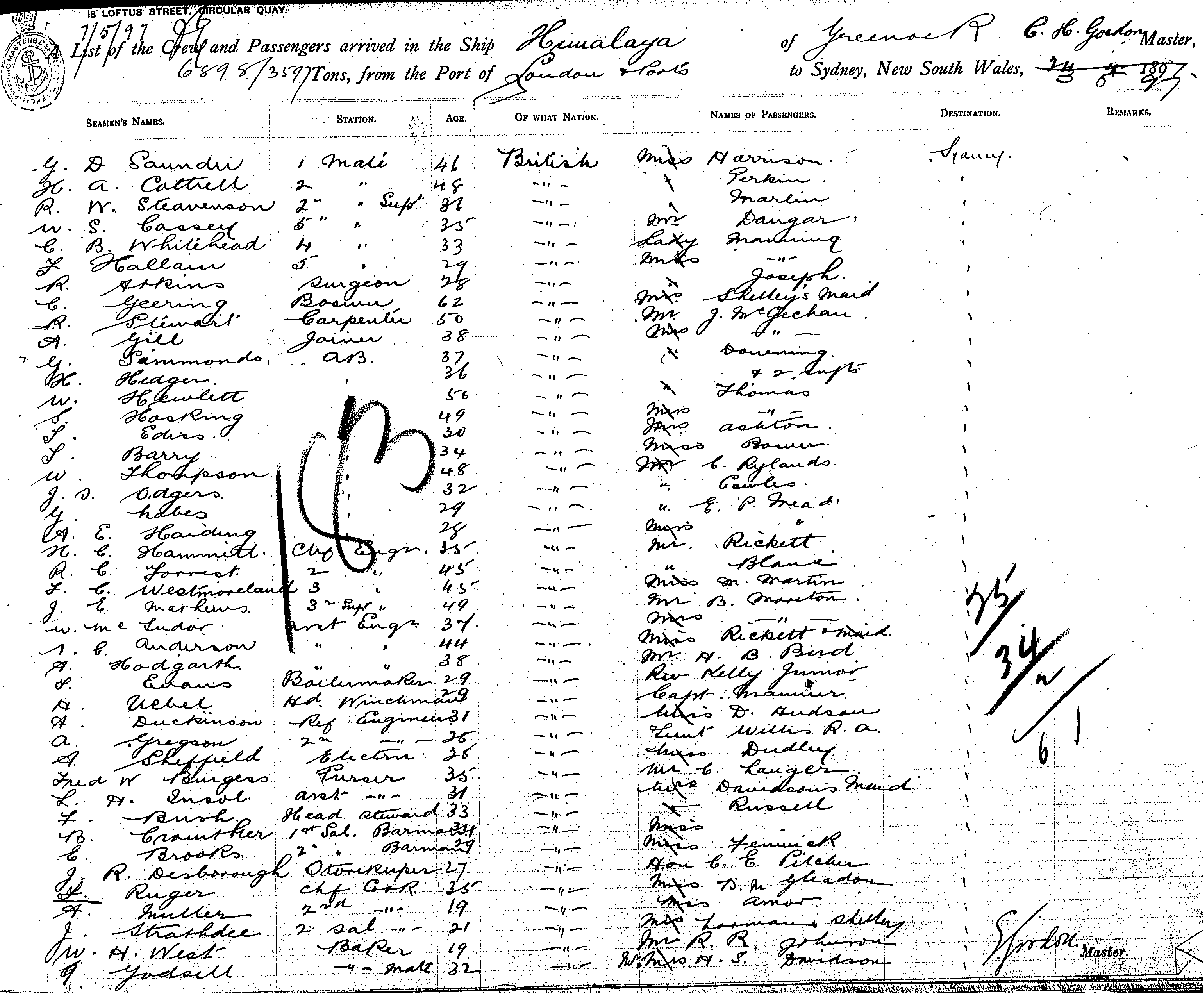 15 LOFTUS STREET, CIRCULAR QUAY.
7/5/97
A List of the Crew and Passengers arrived in the Ship Himalaya of Greenock C. H. Gordon Master,
6898/3597 Tons, from the Port of London & Ports to Sydney, New South Wales, 1897
SEAMEN'S NAMES. STATION. AGE. OF WHAT NATION. NAMES OF PASSENGERS. DESTINATION. REMARKS.
G. D Saunder 1 Mate 46 British Miss Harrison Sydney
H. A. Cottrell 2 " 48 " Perkin
R. W. Steavenson 2nd " Supy 31 " Martin
W. S. Cassey 3 " 35 " Mr Dangar
C. B. Whitehead 4 " 33 " Lady Manning
F Hallam 5 " 29 " Miss "
R. Atkins Surgeon 28 " Joseph
C. Geering Bosun 62 " Mrs Shelley's Maid
R. Stewart Carpenter 50 " Mr J. McGechan
A. Gill Joiner 38 " Mrs "
G. Sammonds A.B. 37 " Downing
H. Hedger 36 " & 2 infts
W. Hewlett 50 " Thomas
S Hosking 49 " Miss "
30 " Ashton
T. Barry 34 " Miss Bowen
W. Thompson 48 " Mr C. Rylands
J. S. Odgers 32 " " Cowles
G. 29 " " E. P. Mead
A. E. Harding 28 " Miss "
H. C. Hammett Chf Engr. 35 " Mr. Rickett
R. C Forrest 2 " 45 " " Bland
F. C. Westmoreland 3 " 45 " Miss M. Martin
J. E. Mathews 3rd Supy " 49 " Mr B. Moreton
W. Mc Tudor asst Engr 37 " Mrs "
Anderson " " 44 " Miss Rickett & maid
A. Hodgarth " " 38 " Mr H. B. Bird
Evans Boilermaker 29 " Rev Kelly Junior
H. Uebel Hd. Winchman 29 " Capt.
A. Duckinson Ref Engineer 31 " Miss D. Hudson
A. Gregson 2nd " " Lieut Willis R. A.
A Sheffield Electrn " Miss Dudley
Fred W Burgess Purser 35 " Mr C. Langer
L. H. Insol asst " 31 " Mrs Davidson's Maid
F. Bush Head Steward 33 " Russell
B. Crowther 1st Sal. Barman " Miss
C. Brooks 2nd " Barman 29 " Miss Fenwick
J. R. Desborough Storekeeper 27 " Hon C. E. Pilcher
Ruger Chf Cook 35 " Miss B. M. Gleadon
A. Muller 2nd " 19 " Miss Amor
J. Strathdee 2 Sal " 21 " Mrs Shelley
W. H. West Baker 19 " Mr R. R. Johnson
G. Godsell " mate 32 " Mrs H. S. Davidson
183
25
34
2
61
Gordon Master